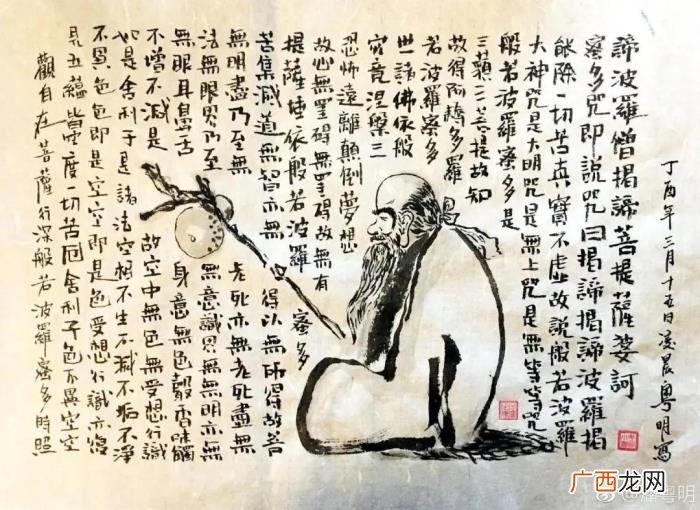 觀自在菩薩行深般若波羅蜜多時照
見五蘊皆空度一切苦厄舍利子色不異空空
不異色色即是空空即是色受想行識亦復
如是舍利子是諸法空相不生不滅不垢不淨
不增不減是故空中無色無受想行識
無眼耳鼻舌身意無色聲香味觸
法無眼界乃至無意識界無無明亦無
無明盡乃至無老死亦無老死盡無
苦集滅道無智亦無得以無所得故菩
提薩埵依般若波羅蜜多
故心無罣礙無罣礙故無有
恐怖遠離顛倒夢想
究竟涅槃三
世諸佛依般
若波羅蜜多
故得阿耨多羅
三藐三菩提故知
般若波羅蜜多是
大神咒是大明咒是無上咒是無等等咒
能除一切苦真實不虛故說般若波羅
蜜多咒即說咒曰揭諦揭諦波羅揭
諦波羅僧揭諦菩提薩婆訶
丁酉年三月十五日凌晨粵明寫
广西龙网
@潘粤明